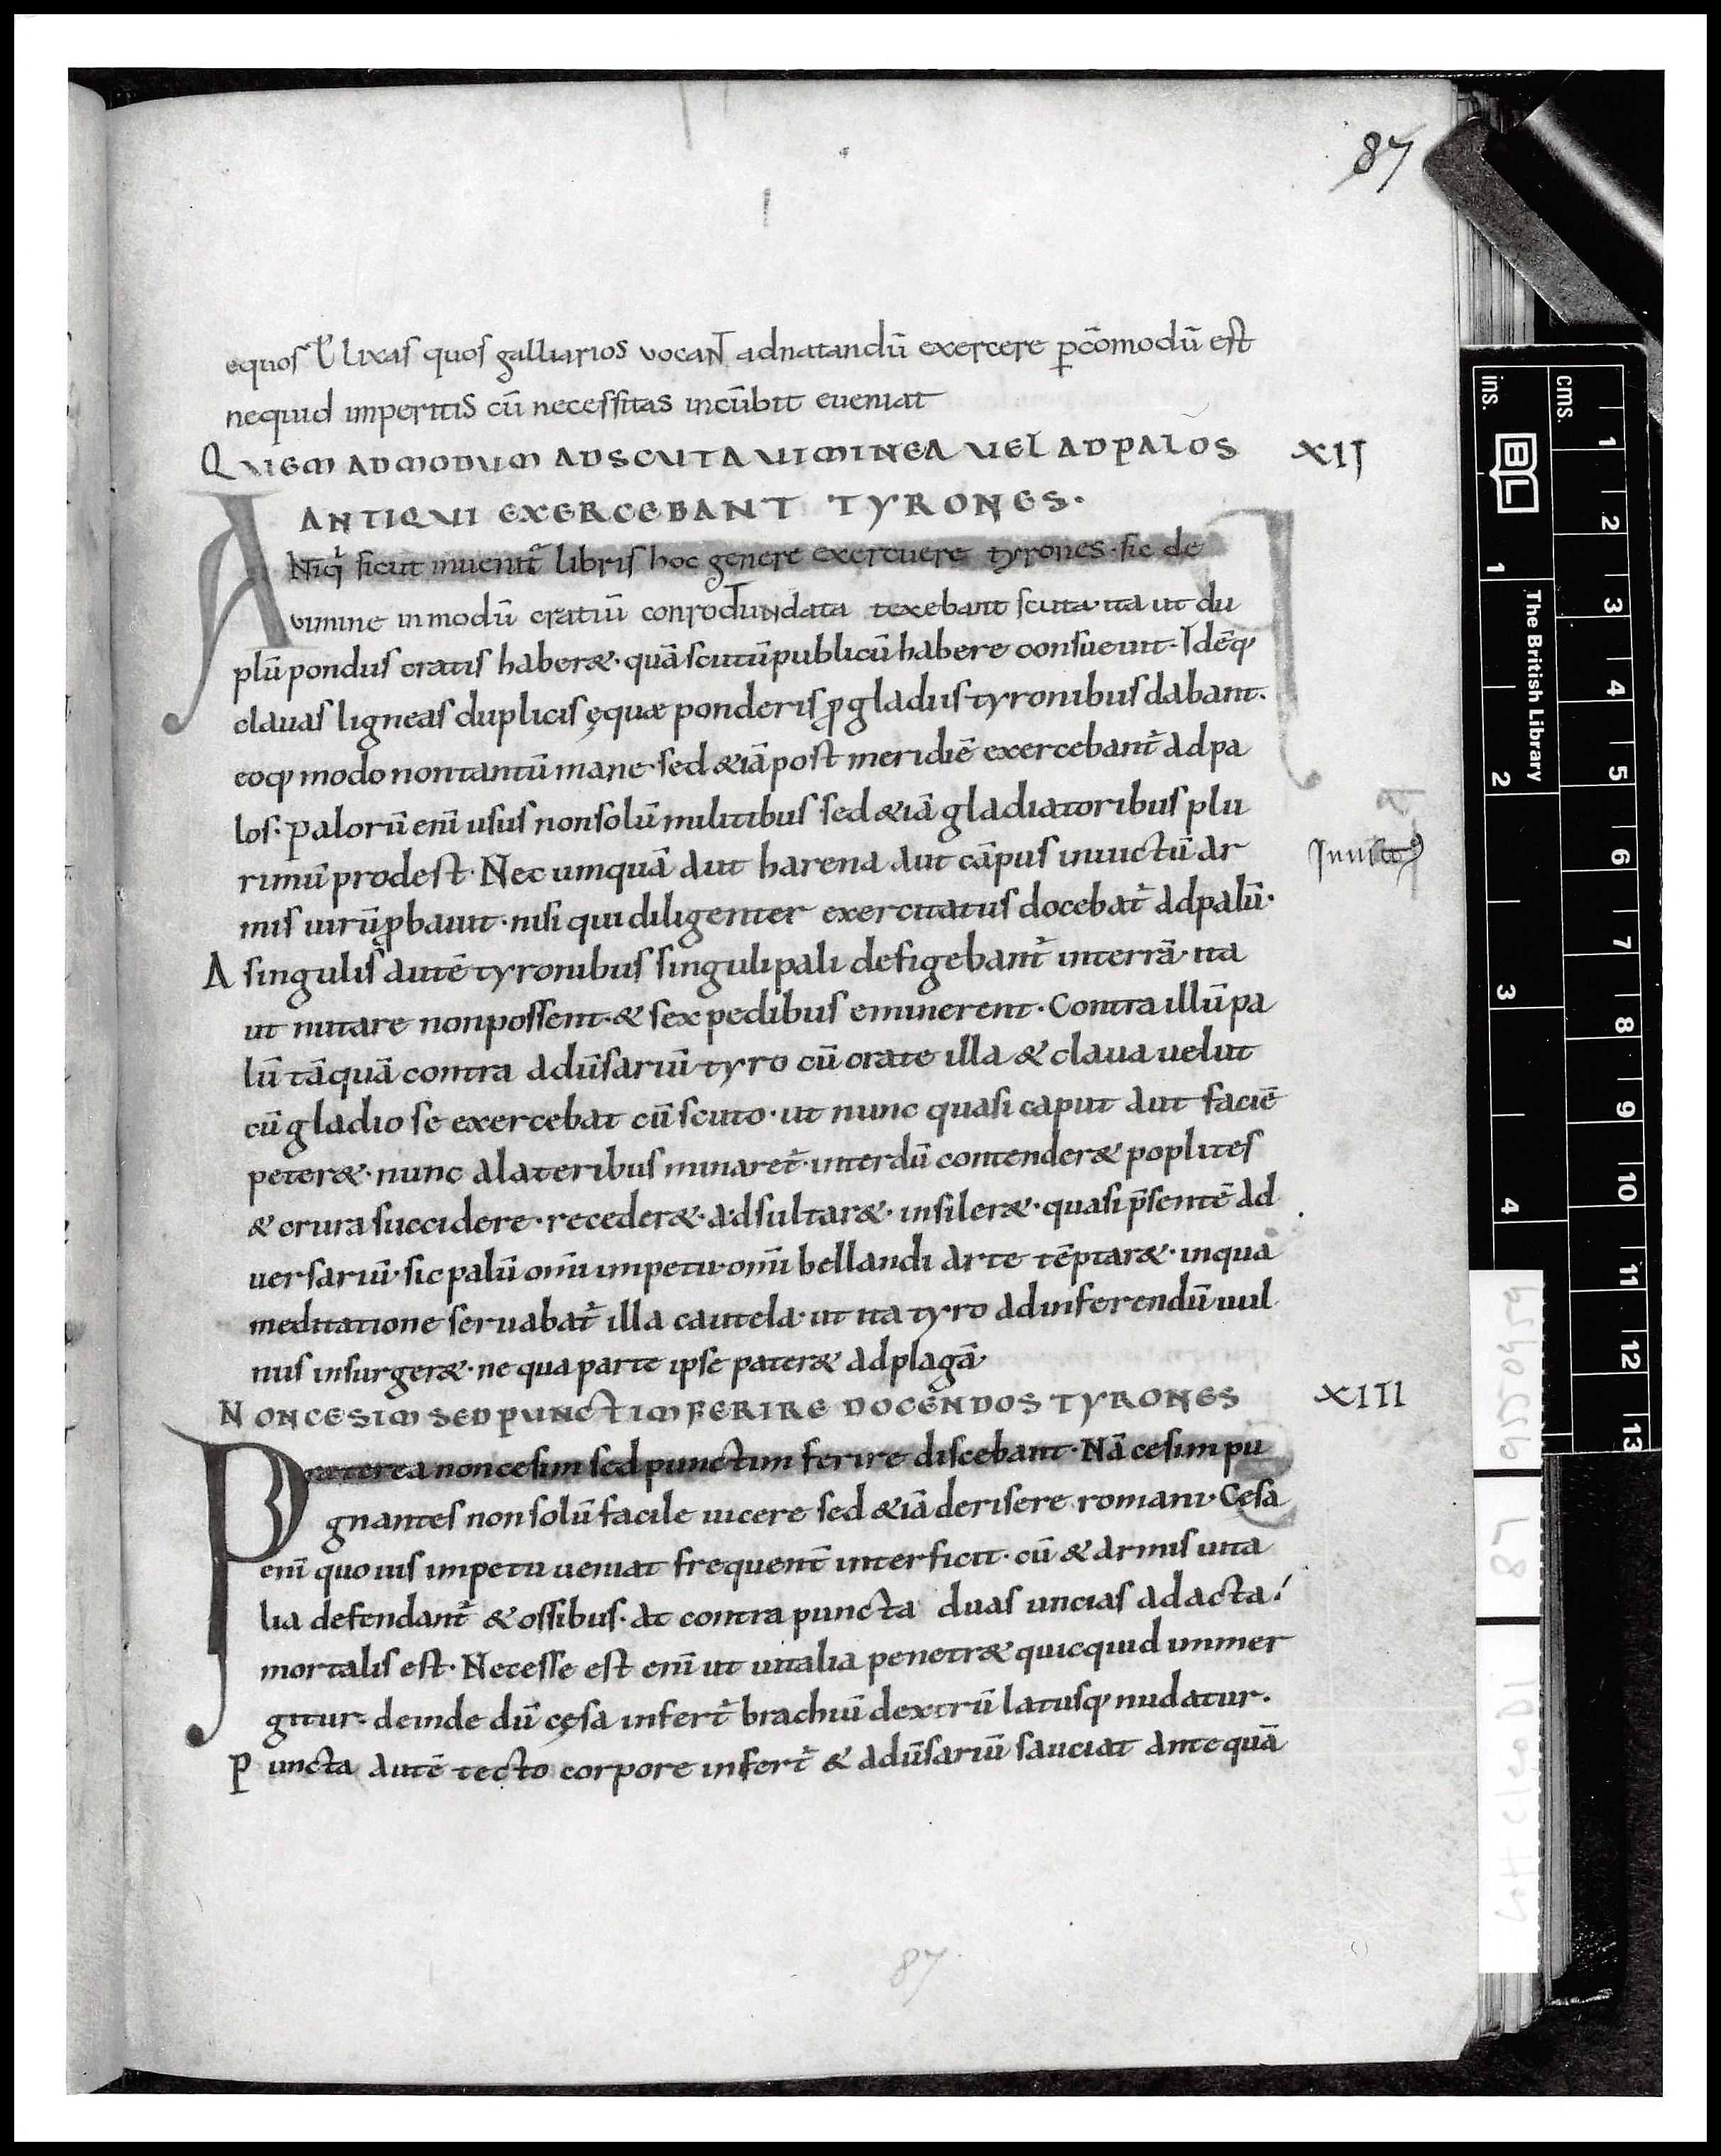 87
equos ł lixas quos galliarios vocaNT adnatandū exercere ꝑcōmodū est
nequid imperitis cū necessitas incūbit eueniat
QUEM ADMODUM ADSCUTA UIMINEA UEL ADPALOS XIJ
ANTIQUI EXERCEBANT TYRONES.
ANtiq̇ sicut inuenit᷑ libris hoc genere exercuere tyrones· sic de
vimine inmodū cratiū conrotundata texebant scuta· ita ut du
plū pondus cratis haber&· quā scutū publicū habere consueuit· Idēq;
clauas ligneas duplicis ęquæ ponderis ꝓ gladiis tyronibus dabant·
eoq; modo nontantū mane· sed &iā post meridiē exercebant᷑ adpa
los· Palorū enī usus nonsolū militibus sed &iā gladiatoribus plu
rimū prodest· Nec umquā aut harena aut cāpus inuictū ar Inuict
mis uirū ꝓbauit· nisi qui diligenter exercitatus docebat᷑ adpalū·
A singulis autē tyronibus singuli pali defigebant᷑ interrā· ita
ut nutare nonpossent· & sex pedibus eminerent· Contra illū pa
lū tāquā contra adūsariū tyro cū crate illa & claua uelut
cū gladio se exercebat cū scuto· ut nunc quasi caput aut faciē
peter&· nunc alateribus minaret᷑· interdū contender& poplites
& crura succidere· receder&· adsultar&· insiler&· quasi p̄sentē ad
uersariū· sic palū omī impetu· omī bellandi arte tēptar&· inqua
meditatione seruabat᷑ illa cautela· ut ita tyro adinferendū uul
nus insurger&· ne qua parte ipse pater& adplagā·
NONCESIM SED PUNCTIM FERIRE DOCENDOS TYRONES XIII
Praeterea noncesim sed punctim ferire discebant· Nā cesim pu
gnantes non solū facile uicere sed &iā derisere romani· Cesa
enī quouis impetu ueniat frequent̄ interficit· cū & armis uita
lia defendant᷑ & ossibus· at contra puncta duas uncias adacta!
mortalis est· Necesse est enī ut uitalia penetr& quicquid immer
gitur· deinde dū cęsa infert᷑ brachiū dextrū latusq; nudatur·
Puncta autē tecto corpore infert᷑ & adūsariū sauciat antequā
87
ins.
cms.
BL
The British Library
1
2
3
4
1
2
3
4
5
6
7
8
9
10
11
12
13
87